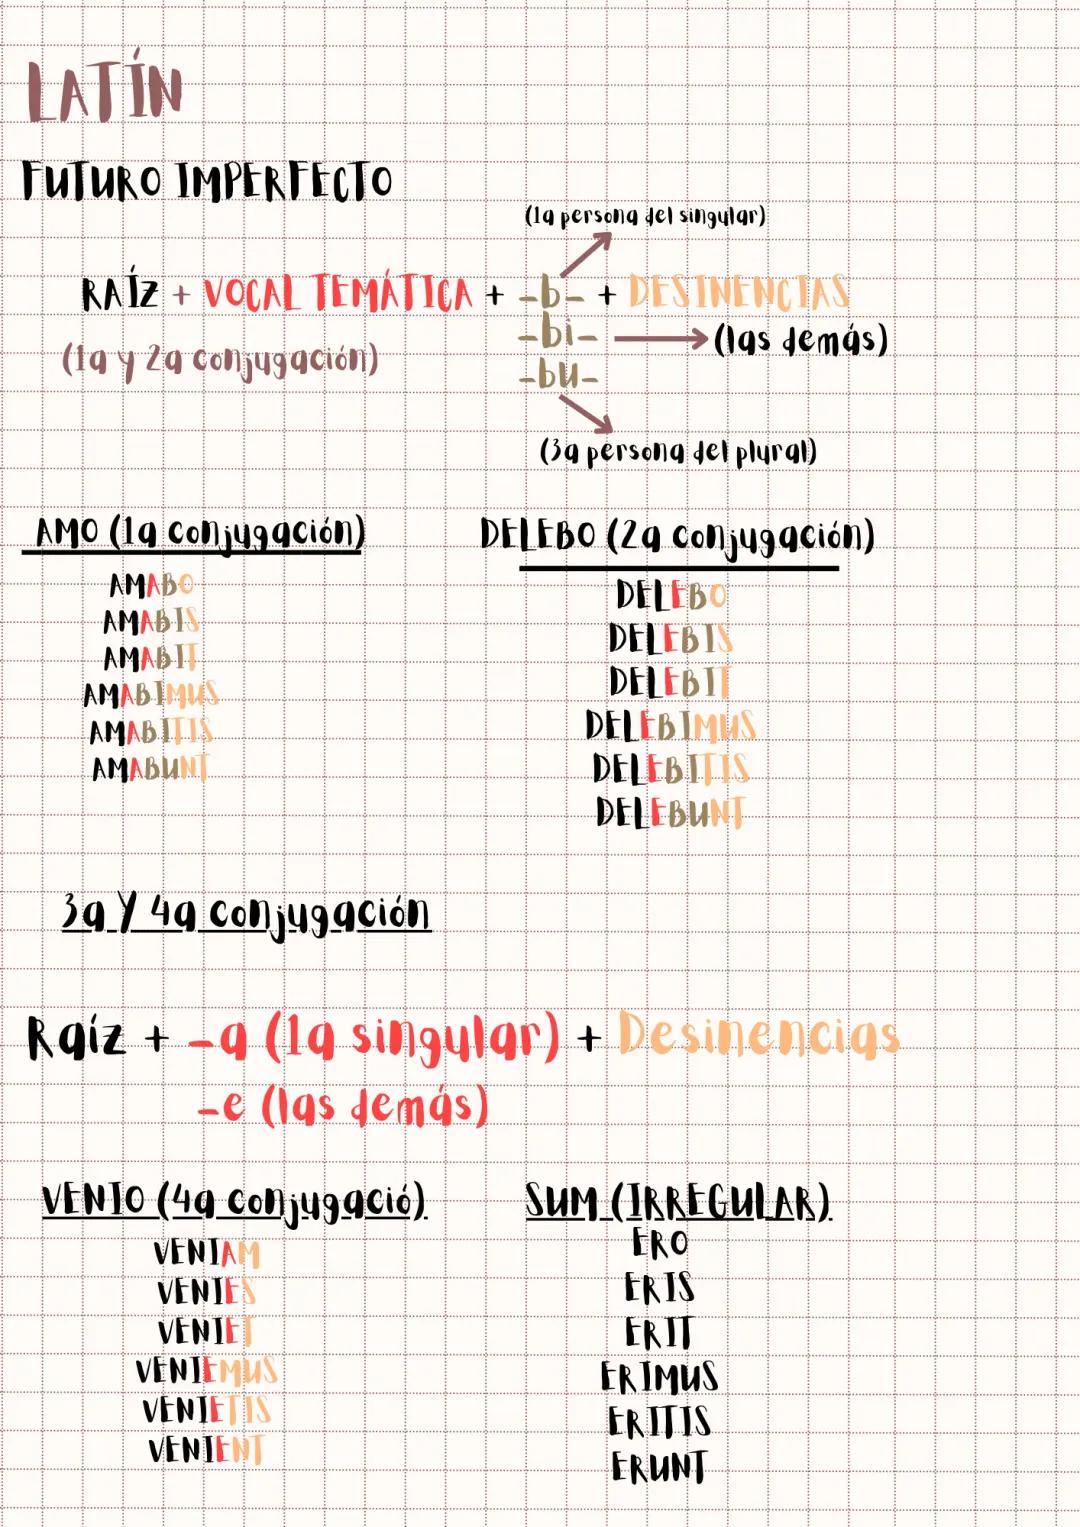 LATÍN
FUTURO IMPERFECTO
(1a persona del singular)
RAÍZ + VOCAL TEMÁTICA + -b- + DESINENCIAS
-bi- (las demás)
(1a y 2a conjugación)
-bu-
(3a persona del plural)
AMO (1a conjugación)
AMABO
AMABIS
AMABIT
AMABIMUS
AMABITIS
AMABUNT
DELEBO (2a conjugación)
DELEBO
DELEBIS
DELEBIT
DELEBIMUS
DELEBITIS
DELEBUNT
3a Y 4a conjugación
Raíz + -a (1a singular) + Desinencias
-e (las demás)
VENIO (4a conjugació)
VENIAM
VENIES
VENIET
VENIEMUS
VENIETIS
VENIENT
SUM (IRREGULAR)
ERO
ERIS
ERIT
ERIMUS
ERITIS
ERUNT